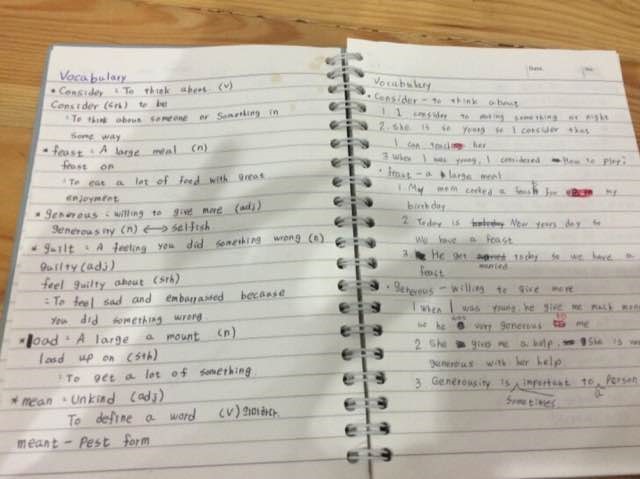 Vocabulary
* Consider : To think about (v)
Consider (sth) to be
: To think about someone or something in
some way
* feast : A large meal (n)
feast on
: To eat a lot of food with great
enjoyment
* generous : willing to give more (adj)
generousity (n) ⟷ selfish
* guilt : A feeling you did something wrong (n)
guilty (adj)
feel guilty about (sth)
: To feel sad and embarrassed because
you did something wrong
* load : A large a mount (n)
load up on (sth)
: To get a lot of something
* mean : Unkind (adj)
To define a word (v) 의미하다.
meant - Pest form
Date. No.
Vocabulary
• Consider - to think about
1. I consider to eating something at night
2. She is so young so I consider that
I can teach her
3 When I was young, I considered How to play
• feast - a large meal
1. My mom cooked a feast for my
birthday
2 Today is New years day so
We have a feast
3. He get married today so we have a
feast
• generous - willing to give more
1 When I was young, he give me much
he was very generous to me
2 She gives me a help, She is
generous with her help
3 Generousity is sometimes important to a Person